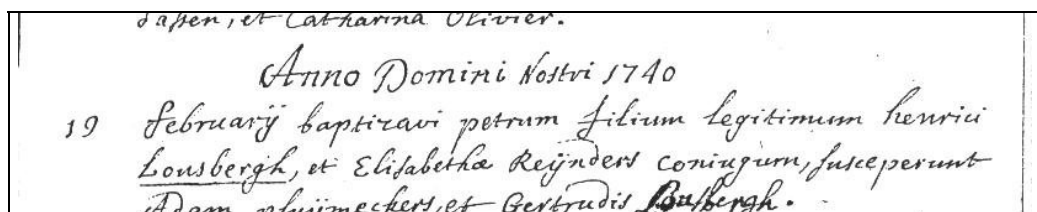 Dassen, et Catharina Olivier.
Anno Domini Nostri 1740
19 februarÿ baptizavi petrum filium legitimum henrici
Lousbergh, et Elisabethæ Reÿnders coniugum, susceperunt
Adam pluÿmeckers, et Gertrudis Lousbergh.